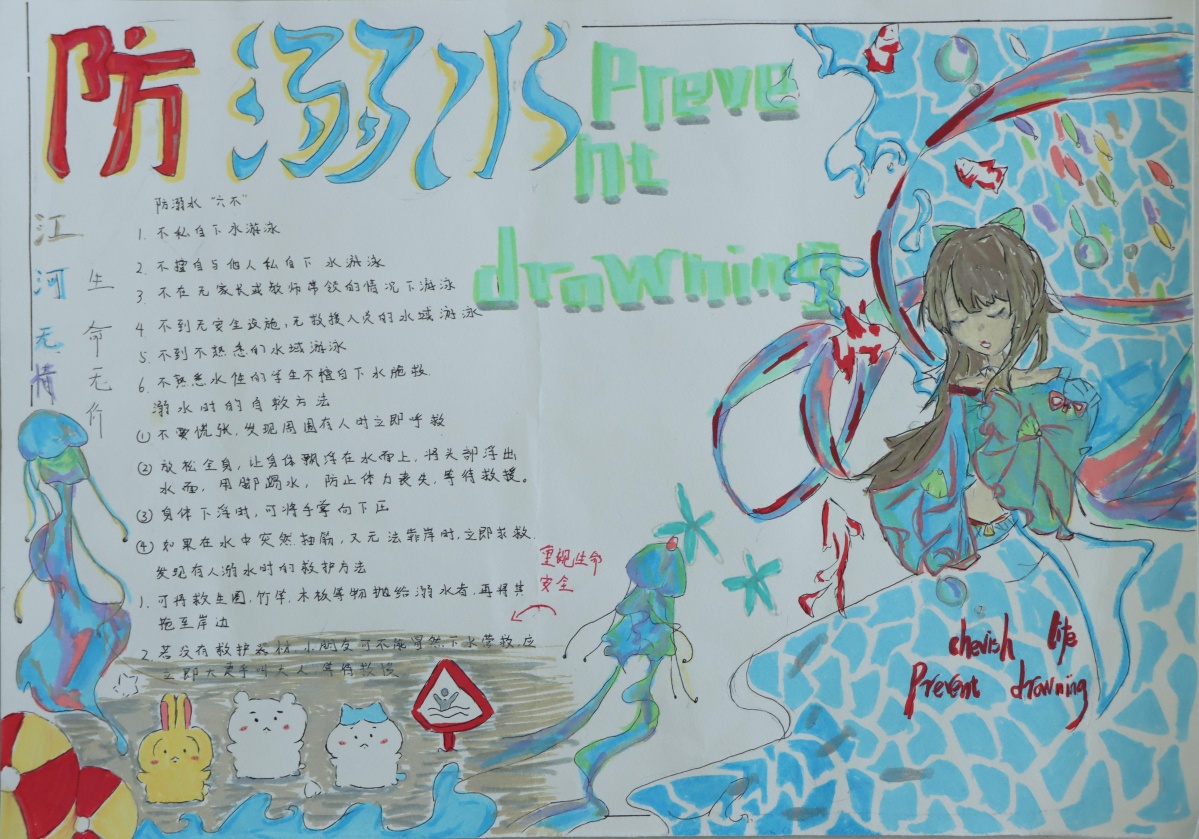 防溺水
Preve
nt
drawning
江河无情
生命无价
防溺水“六不”
1. 不私自下水游泳
2. 不擅自与他人私自下水游泳
3. 不在无家长或教师带领的情况下游泳
4. 不到无安全设施,无救援人员的水域游泳
5. 不到不熟悉的水域游泳
6. 不熟悉水性的学生不擅自下水施救.
溺水时的自救方法
① 不要慌张,发现周围有人时立即呼救
② 放松全身,让身体飘浮在水面上,将头部浮出
水面,用脚踢水,防止体力丧失,等待救援。
③ 身体下浮时,可将手掌向下压
④ 如果在水中突然抽筋,又无法靠岸时,立即求救.
发现有人溺水时的救护方法
1. 可将救生圈,竹竿,木板等物抛给溺水者,再将其
拖至岸边
2. 若没有救护器材,小朋友可不能冒然下水营救应
立即大声呼叫大人
重视生命
安全
cherish life
Prevent drawning